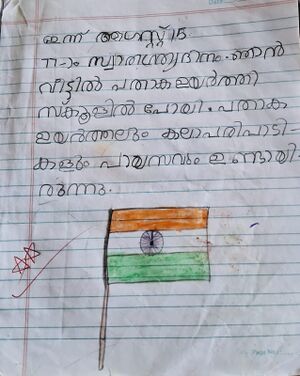 ഇന്ന് ആഗസ്റ്റ് 15
77-ാം സ്വാതന്ത്ര്യദിനം. ഞാൻ
വീട്ടിൽ പതാക ഉയർത്തി
സ്കൂളിൽ പോയി. പതാക
ഉയർത്തലും കലാപരിപാടി-
കളും പായസവും ഉണ്ടായി-
രുന്നു.